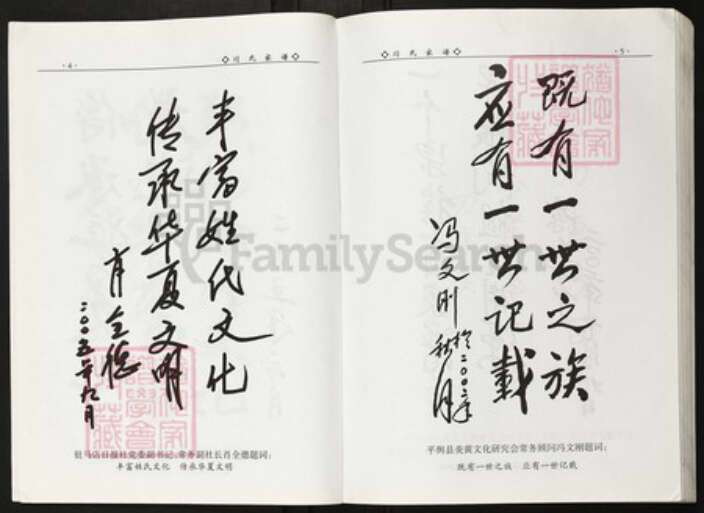 ·4·
◇冯氏家谱◇
丰富姓代文化
传承华夏文明
肖全德
二00五年九月
驻马店日报社党委副书记、常务副社长肖全德题词：
丰富姓氏文化 传承华夏文明
◇冯氏家谱◇
·5·
既有一世之族
应有一世记载
冯文刚
於二00二年
秋月
平舆县炎黄文化研究会常务顾问冯文刚题词：
既有一世之族 应有一世记载
FamilySearch